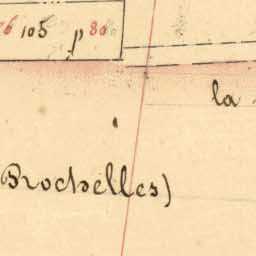 6 105 p 80
la
Brochelles)